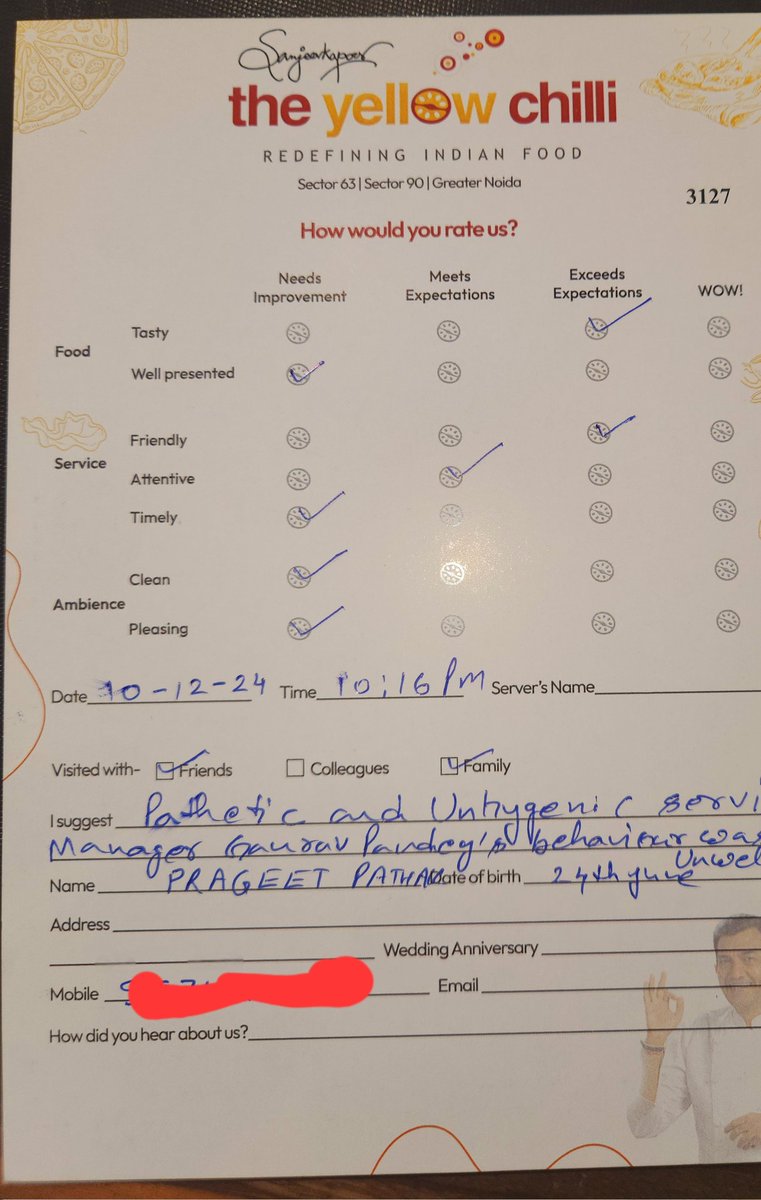 Sanjeevkapoor
the yellow chilli
REDEFINING INDIAN FOOD
Sector 63 | Sector 90 | Greater Noida
3127
How would you rate us?
Needs Improvement Meets Expectations Exceeds Expectations WOW!
Food
Tasty
Well presented
Service
Friendly
Attentive
Timely
Ambience
Clean
Pleasing
Date 10-12-24 Time 10:16 PM Server's Name
Visited with- Friends Colleagues Family
I suggest Pathetic and Unhygenic servi
Manager Gaurav Pandey's behaviour was
Unwel
Name PRAGEET PATHAK Date of birth 24th june
Address
Wedding Anniversary
Mobile Email
How did you hear about us?